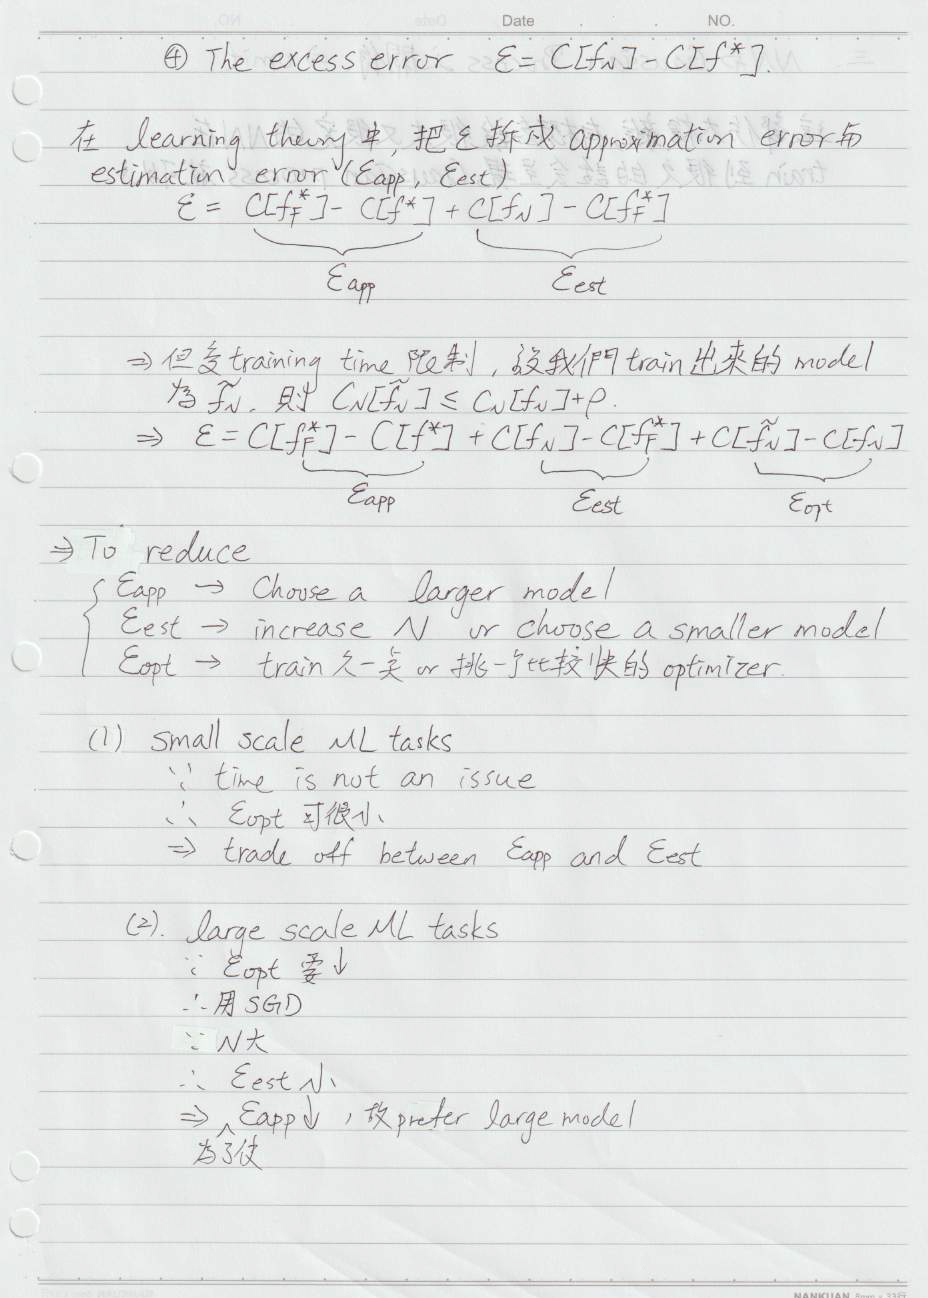 Date . . NO.
④ The excess error ε = C[f_N] - C[f*].
在 learning theory 中, 把 ε 拆成 approximation error 与
estimation error (εapp, εest)
ε = C[f*_F] - C[f*] + C[f_N] - C[f*_F]
εapp εest
⇒ 但受 training time 限制, 設我們 train 出來的 model
為 f̃_N, 則 C_N[f̃_N] ≤ C_N[f_N] + ρ.
⇒ ε = C[f*_F] - C[f*] + C[f_N] - C[f*_F] + C[f̃_N] - C[f_N]
εapp εest εopt
⇒ To reduce
εapp → Choose a larger model
εest → increase N or choose a smaller model
εopt → train 久一点 or 挑一个比較快的 optimizer.
(1) small scale ML tasks
∵ time is not an issue
∴ εopt 可很小
⇒ trade off between εapp and εest
(2). large scale ML tasks
∵ εopt 要↓
∴ 用 SGD
∵ N大
∴ εest 小
⇒ 為了使 εapp↓, 故 prefer large model
NANKUAN